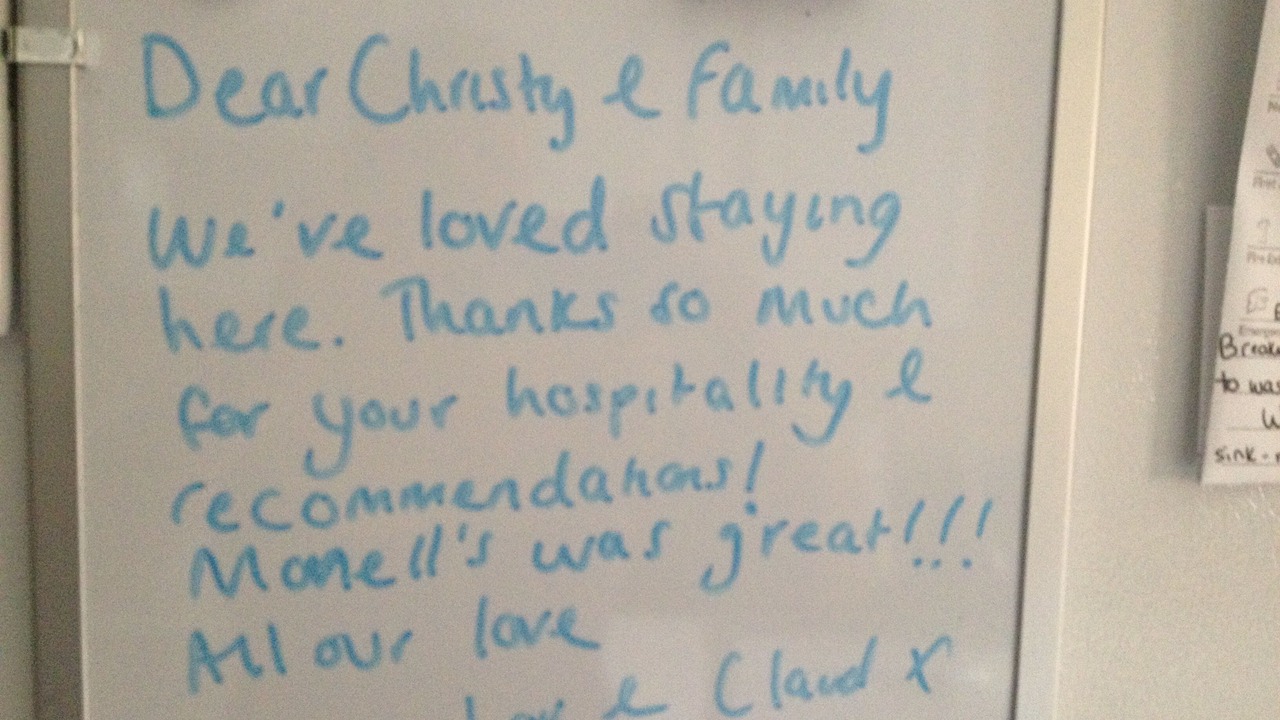 Dear Christy & Family
We've loved staying
here. Thanks so much
for your hospitality &
recommendations!
Monell's was great!!!
All our love
& Claud x
Break
to was
sink-